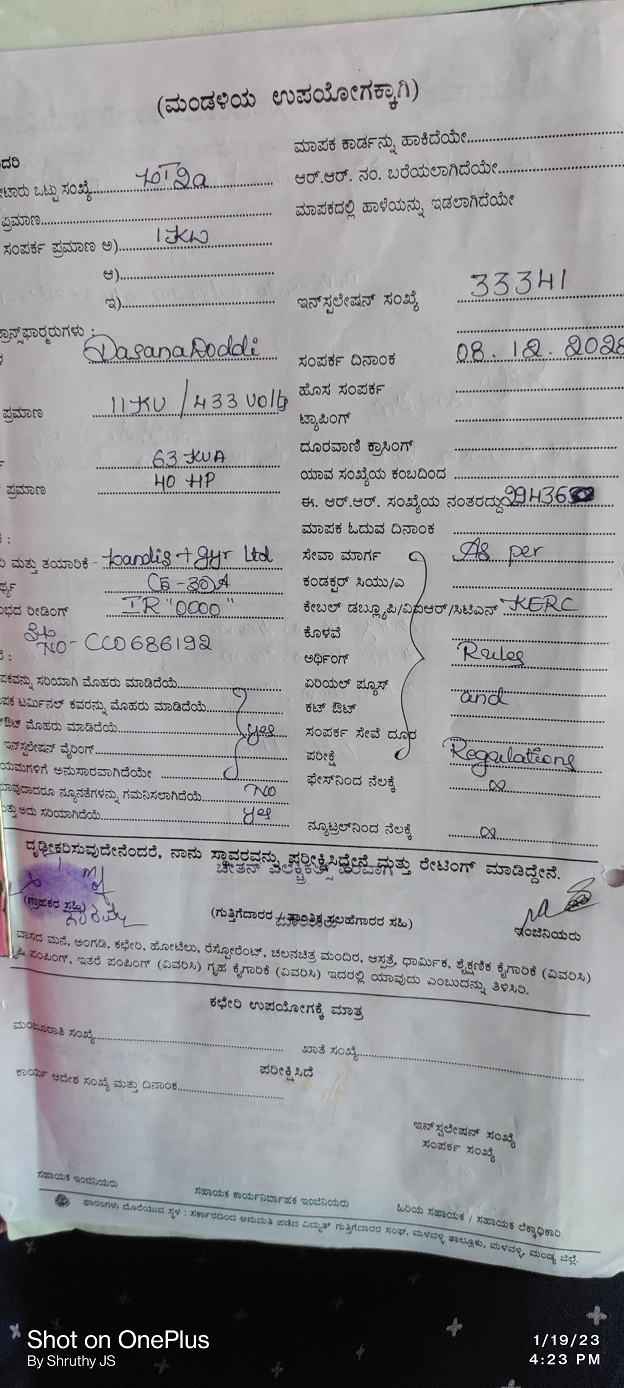 (ಮಂಡಳಿಯ ಉಪಯೋಗಕ್ಕಾಗಿ)
ಮಾಪಕ ಕಾರ್ಡನ್ನು ಹಾಕಿದೆಯೇ
ಒಟ್ಟು ಸಂಖ್ಯೆ
ಆರ್.ಆರ್. ನಂ. ಬರೆಯಲಾಗಿದೆಯೇ
ಪ್ರಮಾಣ
ಮಾಪಕದಲ್ಲಿ ಹಾಳೆಯನ್ನು ಇಡಲಾಗಿದೆಯೇ
ಸಂಪರ್ಕ ಪ್ರಮಾಣ ಅ) 1 KW
ಆ)
ಇ)
ಇನ್‌ಸ್ಟಲೇಷನ್ ಸಂಖ್ಯೆ 33341
DasanaDoddi
ಸಂಪರ್ಕ ದಿನಾಂಕ 08.12.202
ಹೊಸ ಸಂಪರ್ಕ
ಪ್ರಮಾಣ 11KV/433 Volts
ಟ್ಯಾಪಿಂಗ್
ದೂರವಾಣಿ ಕ್ರಾಸಿಂಗ್
63 KVA
ಯಾವ ಸಂಖ್ಯೆಯ ಕಂಬದಿಂದ
ಪ್ರಮಾಣ 40 HP
ಈ. ಆರ್.ಆರ್. ಸಂಖ್ಯೆಯ ನಂತರದ್ದು 29436
ಮಾಪಕ ಓದುವ ದಿನಾಂಕ
ಮತ್ತು ತಯಾರಿಕೆ - Landis + Gyr Ltd
ಸೇವಾ ಮಾರ್ಗ As per
(5-30)A
ಕಂಡಕ್ಟರ್ ಸಿಯು/ಎ
ರೀಡಿಂಗ್ IR "0000"
ಕೇಬಲ್ ಡಬ್ಲ್ಯೂಪಿ/ವಿಐಆರ್/ಸಿಟಿಎಸ್ KERC
NO- CC0686192
ಕೊಳವೆ
ಅರ್ಥಿಂಗ್ Rules
ಸರಿಯಾಗಿ ಮೊಹರು ಮಾಡಿದೆಯೆ
ಏರಿಯಲ್ ಫ್ಯೂಸ್
ಟರ್ಮಿನಲ್ ಕವರನ್ನು ಮೊಹರು ಮಾಡಿದೆಯೆ
ಕಟ್ ಔಟ್ and
ಮೊಹರು ಮಾಡಿದೆಯೆ yes
ಸಂಪರ್ಕ ಸೇವೆ ದೂರ
ಇನ್‌ಸ್ಟಲೇಷನ್ ವೈರಿಂಗ್
ಪರೀಕ್ಷೆ Regulations
ಅನುಸಾರವಾಗಿದೆಯೇ
ಫೇಸ್‌ನಿಂದ ನೆಲಕ್ಕೆ ∞
ನ್ಯೂನತೆಗಳನ್ನು ಗಮನಿಸಲಾಗಿದೆಯೆ NO
ಅದು ಸರಿಯಾಗಿದೆಯೆ yes
ನ್ಯೂಟ್ರಲ್‌ನಿಂದ ನೆಲಕ್ಕೆ ∞
ದೃಢೀಕರಿಸುವುದೇನೆಂದರೆ, ನಾನು ಸ್ಥಾವರವನ್ನು ಪರೀಕ್ಷಿಸಿದ್ದೇನೆ ಮತ್ತು ರೇಟಿಂಗ್ ಮಾಡಿದ್ದೇನೆ.
(ಗ್ರಾಹಕರ ಸಹಿ)
(ಗುತ್ತಿಗೆದಾರರ ತಾಂತ್ರಿಕ ಸಲಹೆಗಾರರ ಸಹಿ)
ಇಂಜಿನಿಯರು
ವಾಸದ ಮನೆ, ಅಂಗಡಿ, ಕಛೇರಿ, ಹೋಟೆಲು, ರೆಸ್ಟೋರೆಂಟ್, ಚಲನಚಿತ್ರ ಮಂದಿರ, ಆಸ್ಪತ್ರೆ, ಧಾರ್ಮಿಕ, ಶೈಕ್ಷಣಿಕ ಕೈಗಾರಿಕೆ (ವಿವರಿಸಿ)
ಪಂಪಿಂಗ್, ಇತರೆ ಪಂಪಿಂಗ್ (ವಿವರಿಸಿ) ಗೃಹ ಕೈಗಾರಿಕೆ (ವಿವರಿಸಿ) ಇದರಲ್ಲಿ ಯಾವುದು ಎಂಬುದನ್ನು ತಿಳಿಸಿರಿ.
ಕಛೇರಿ ಉಪಯೋಗಕ್ಕೆ ಮಾತ್ರ
ಮಂಜೂರಾತಿ ಸಂಖ್ಯೆ
ಖಾತೆ ಸಂಖ್ಯೆ
ಪರೀಕ್ಷಿಸಿದೆ
ಕಾರ್ಯ ಆದೇಶ ಸಂಖ್ಯೆ ಮತ್ತು ದಿನಾಂಕ
ಇನ್‌ಸ್ಟಲೇಷನ್ ಸಂಖ್ಯೆ
ಸಂಪರ್ಕ ಸಂಖ್ಯೆ
ಸಹಾಯಕ ಇಂಜಿನಿಯರು
ಸಹಾಯಕ ಕಾರ್ಯನಿರ್ವಾಹಕ ಇಂಜಿನಿಯರು
ಹಿರಿಯ ಸಹಾಯಕ / ಸಹಾಯಕ ಲೆಕ್ಕಾಧಿಕಾರಿ
ಫಾರಂಗಳು ದೊರೆಯುವ ಸ್ಥಳ : ಸರ್ಕಾರದಿಂದ ಅನುಮತಿ ಪಡೆದ ವಿದ್ಯುತ್ ಗುತ್ತಿಗೆದಾರರ ಸಂಘ, ಮಳವಳ್ಳಿ ತಾಲ್ಲೂಕು, ಮಳವಳ್ಳಿ, ಮಂಡ್ಯ ಜಿಲ್ಲೆ.
Shot on OnePlus
By Shruthy JS
1/19/23
4:23 PM